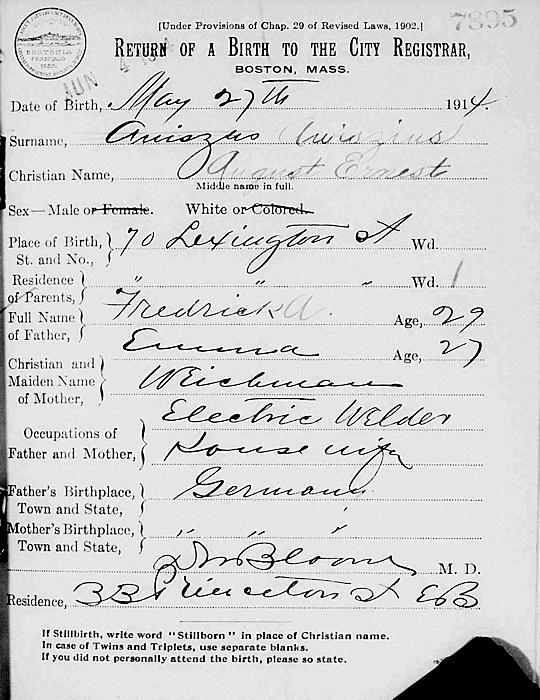 7895
[Under Provisions of Chap. 29 of Revised Laws, 1902.]
RETURN OF A BIRTH TO THE CITY REGISTRAR,
BOSTON, MASS.
JUN 4
Date of Birth, May 27th 1914.
Surname, Aniszus
Christian Name, August Ernest
Middle name in full.
Sex—Male or Female. White or Colored.
Place of Birth, St. and No., 70 Lexington St Wd.
Residence of Parents, " " " Wd. 1
Full Name of Father, Fredrick A. Age, 29
Emma Age, 27
Christian and Maiden Name of Mother, Weichman
Electric Welder
Occupations of Father and Mother, Housewife
Father's Birthplace, Town and State, Germany
Mother's Birthplace, Town and State, " " "
Bloom M. D.
Residence, 33 Princeton St EB
If Stillbirth, write word "Stillborn" in place of Christian name.
In case of Twins and Triplets, use separate blanks.
If you did not personally attend the birth, please so state.